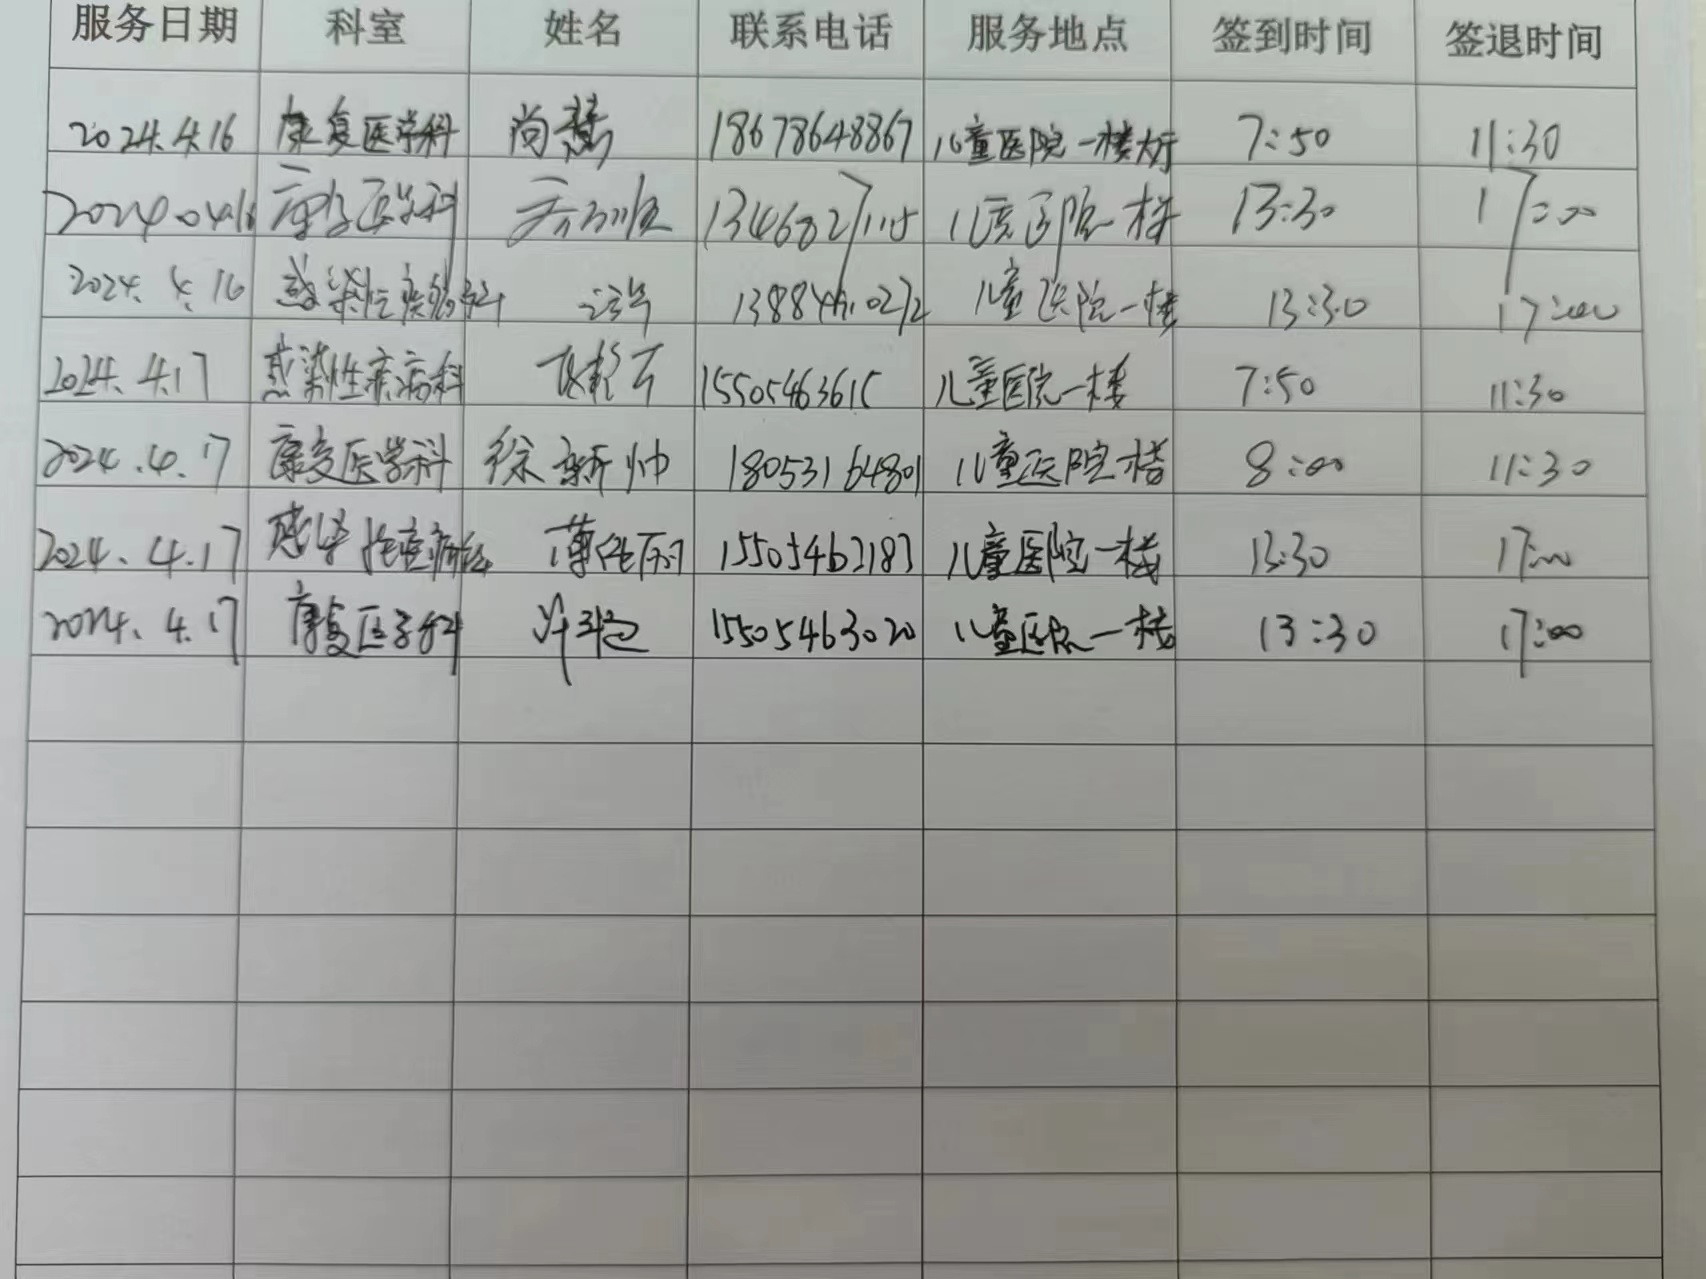 服务日期 科室 姓名 联系电话 服务地点 签到时间 签退时间
2024.4.16 康复医学科 尚慧 18678648867 儿童医院一楼大厅 7:50 11:30
2024.04.16 康复医学科 儿童医院一楼 13:30 17:00
2024.4.16 感染性疾病科 儿童医院一楼 13:30 17:00
2024.4.17 感染性疾病科 15505463615 儿童医院一楼 7:50 11:30
2024.4.17 康复医学科 徐新帅 18053164801 儿童医院楼 8:00 11:30
2024.4.17 感染性疾病科 15505462183 儿童医院一楼 13:30 17:00
2024.4.17 康复医学科 15505463020 儿童医院一楼 13:30 17:00